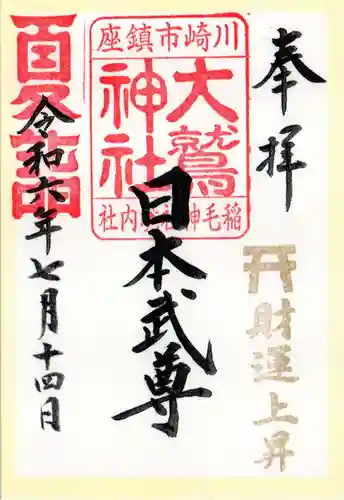 奉拝
財運上昇
川崎市鎮座
大鷲神社
稲毛神社境内社
日本武尊
令和六年七月十四日